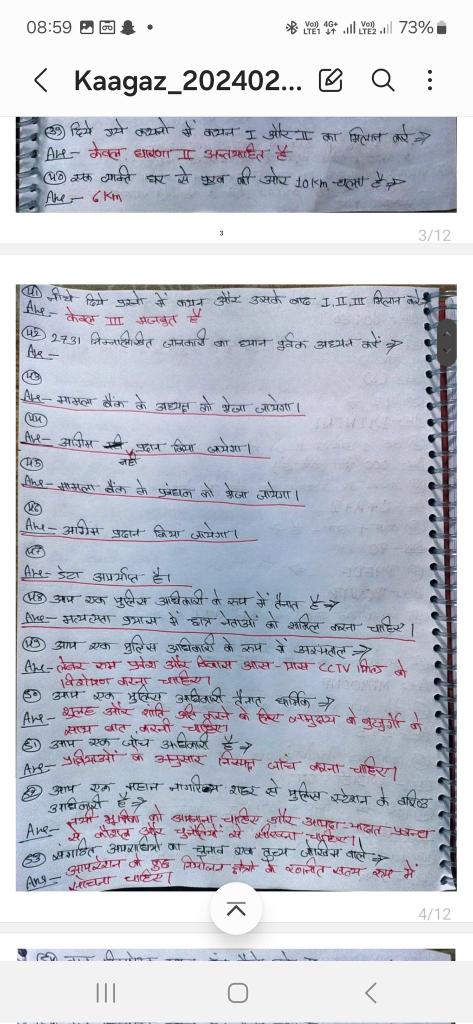 08:59
Vo)) LTE1 4G+ Vo)) LTE2 73%
Kaagaz_202402...
(39) दिये गये कथनो में कथन I और II का मिलान करे
Ans - केवल धारणा II अन्तर्निहित है
(40) एक व्यक्ति घर से पुरब की ओर 10 Km चलता है
Ans - 6 Km
3
3/12
(41) नीचे दिये प्रश्नो में कथन और उसके बाद I, II, III मिलान करे
Ans - केवल III मजबुत है
(42) 2731 निम्नलिखित जानकारी का ध्यान पुर्वक अध्ययन करें
Ans -
(43)
Ans - मामला बैंक के अध्यक्ष को भेजा जायेगा।
(44)
Ans - अग्रिम नहीं प्रदान किया जायेगा।
(45)
Ans - मामला बैंक के प्रबंधक को भेजा जायेगा।
(46)
Ans - अग्रिम प्रदान किया जायेगा।
(47)
Ans - डेटा अपर्याप्त है।
(48) आप एक पुलिस अधिकारी के रूप में तैनात है
Ans - मध्यस्थता प्रयास में छात्र नेताओं को शामिल करना चाहिए।
(49) आप एक पुलिस अधिकारी के रूप में
Ans - प्रवेश और निकास आस-पास CCTV के
विश्लेषण करना चाहिए।
(50) आप एक पुलिस अधिकारी तैनात धार्मिक
Ans - सुलह और शांति के लिए समुदाय के बुजुर्गो के
साथ बात करनी चाहिए।
(51) आप एक जाँच अधिकारी है
Ans - के अनुसार निष्पक्ष जाँच करना चाहिए।
(52) आप एक महान नागरिक शहर से पुलिस स्टेशन के वरिष्ठ
अधिकारी है
Ans - भुमिका को अपनाना चाहिए और
के कौशल और चुनौतियों से सीखना चाहिए।
(53) संगठित अपराधियों का चुनाव एक जोखिम वाले
Ans - आपरेशन के कुछ के रूप में
सोचना चाहिए।
4/12